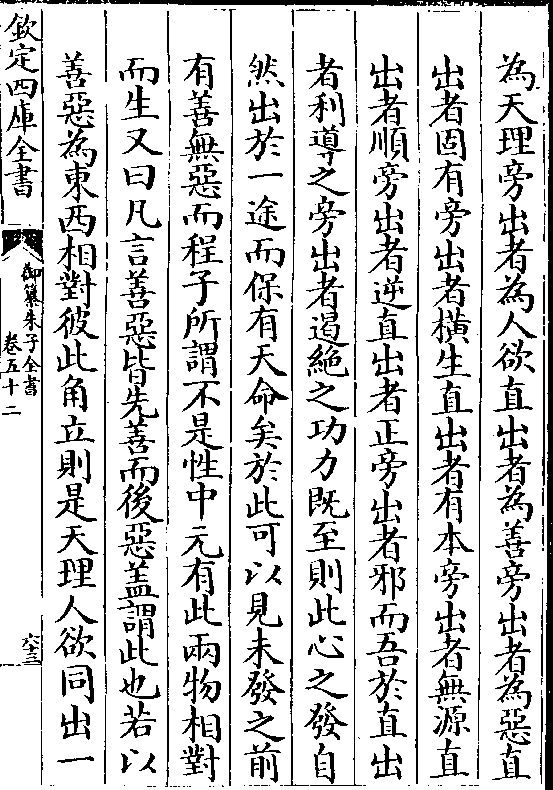 為天理旁出者為人欲直出者為善旁出者為惡直
出者固有旁出者橫生直出者有本旁出者無源直
出者順旁出者逆直出者正旁出者邪而吾於直出
者利導之旁出者遏絶之功力既至則此心之發自
然出於一途而保有天命矣於此可以見未發之前
有善無惡而程子所謂不是性中元有此兩物相對
而生又曰凡言善惡皆先善而後惡盖謂此也若以
善惡為東西相對彼此角立則是天理人欲同出一
欽定四庫全書
御纂朱子全書
卷五十二
六十三